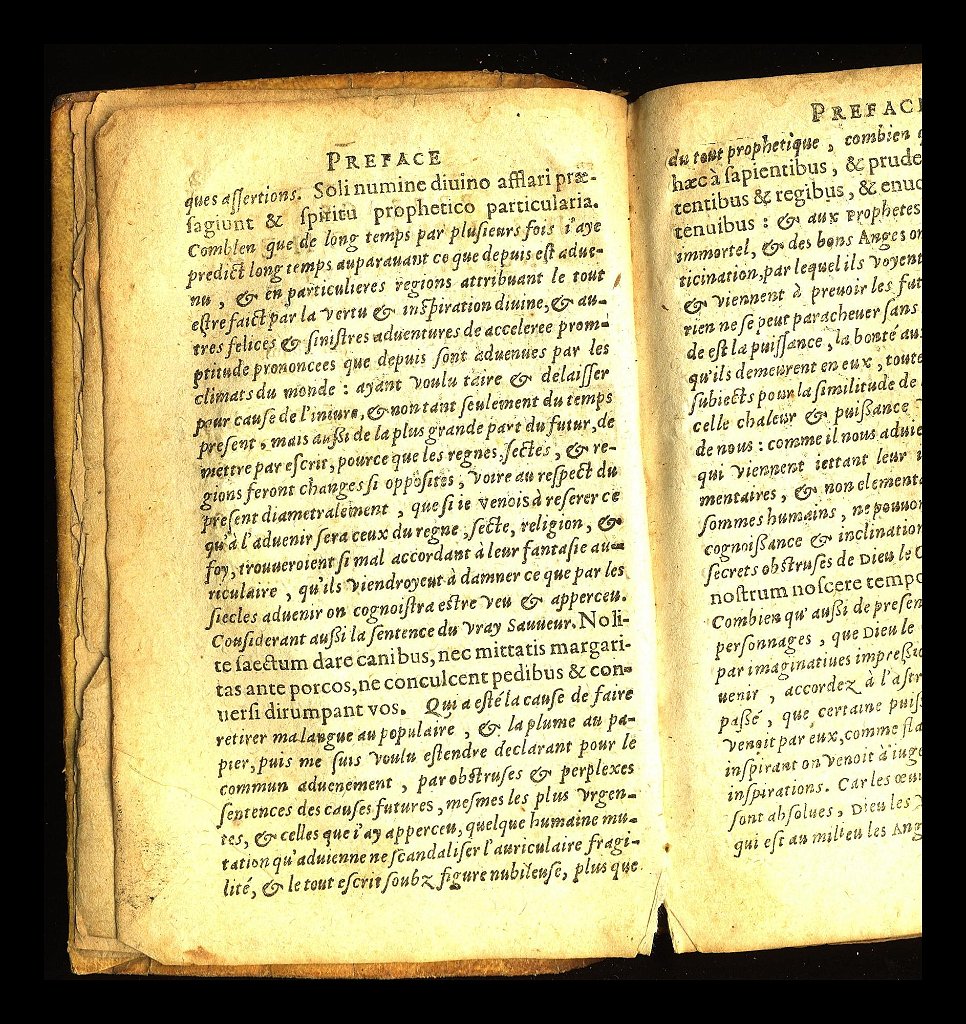 PREFACE
ques aſſertions. Soli numine diuino afflari præ-
ſagiunt & ſpiritu prophetico particularia.
Combien que de long temps par pluſieurs fois i'aye
predict long temps auparauant ce que depuis eſt adue-
nu, & en particulieres regions attribuant le tout
eſtre faict par la vertu & inſpiration diuine, & au-
tres felices & ſiniſtres aduentures de acceleree prom-
ptitude prononcees que depuis ſont aduenues par les
climats du monde : ayant voulu taire & delaiſſer
pour cauſe de l'iniure, & non tant ſeulement du temps
preſent, mais auſſi de la plus grande part du futur, de
mettre par eſcrit, pource que les regnes, ſectes, & re-
gions feront changes ſi oppoſites, voire au reſpect du
preſent diametralement, que ſi ie venois à reſerer ce
qu'à l'aduenir ſera ceux du regne, ſecte, religion, &
foy, trouueroient ſi mal accordant à leur fantaſie au-
riculaire, qu'ils viendroyeut à damner ce que par les
ſiecles aduenir on cognoiſtra eſtre veu & apperceu.
Couſiderant auſſi la ſentence du vray Sauueur. Noli-
te ſaectum dare canibus, nec mittatis margari-
tas ante porcos, ne conculcent pedibus & con-
uerſi dirumpant vos. Qui a eſté la cauſe de faire
retirer ma langue au populaire, & la plume au pa-
pier, puis me ſuis voulu eſtendre declarant pour le
commun aduenement, par obſtruſes & perplexes
ſentences des cauſes futures, meſmes les plus vrgen-
tes, & celles que i'ay apperceu, quelque humaine mu-
tation qu'aduienne ne ſcandaliſer l'auriculaire fragi-
lité, & le tout eſcrit ſoubz figure nubileuſe, plus que
PREFACE
du tout prophetique, combien
hæc à ſapientibus, & prude
tentibus & regibus, & enuc
tenuibus : & aux Prophetes
immortel, & des bons Anges
ticination, par lequel ils voyent
& viennent à preuoir les fut
rien ne ſe peut paracheuer ſans
de eſt la puiſſance, la bonté au
qu'ils demeurent en eux, toute
ſubiects pour la ſimilitude de
celle chaleur & puiſſance
de nous : comme il nous aduie
qui viennent iettant leur
mentaires, & non elementa
ſommes humains, ne pouuon
cognoiſſance & inclination
ſecrets obſtruſes de Dieu le
noſtrum noſcere tempo
Combien qu'auſſi de preſen
perſonnages, que Dieu le
par imaginatiues impreſſio
uenir, accordez à l'aſtr
paſſé, que certaine puiſ
venoit par eux, comme fla
inſpirant on venoit à iuge
inſpirations. Car les œuu
ſont abſolues, Dieu les
qui eſt au milieu les Ang